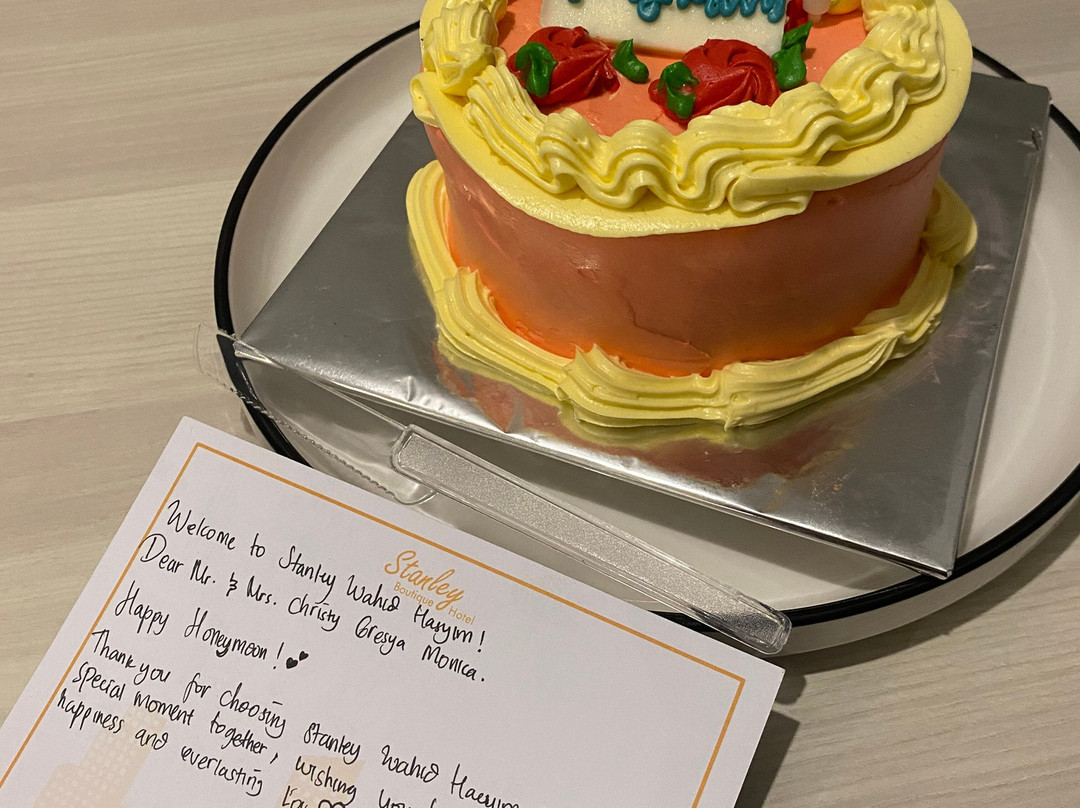 Stanley
Boutique Hotel
Welcome to Stanley Wahid Hasyim!
Dear Mr. & Mrs. Christy Gresya Monica.
Happy Honeymoon!
Thank you for choosing Stanley Wahid Hasyim
special moment together, wishing you
happiness and everlasting love